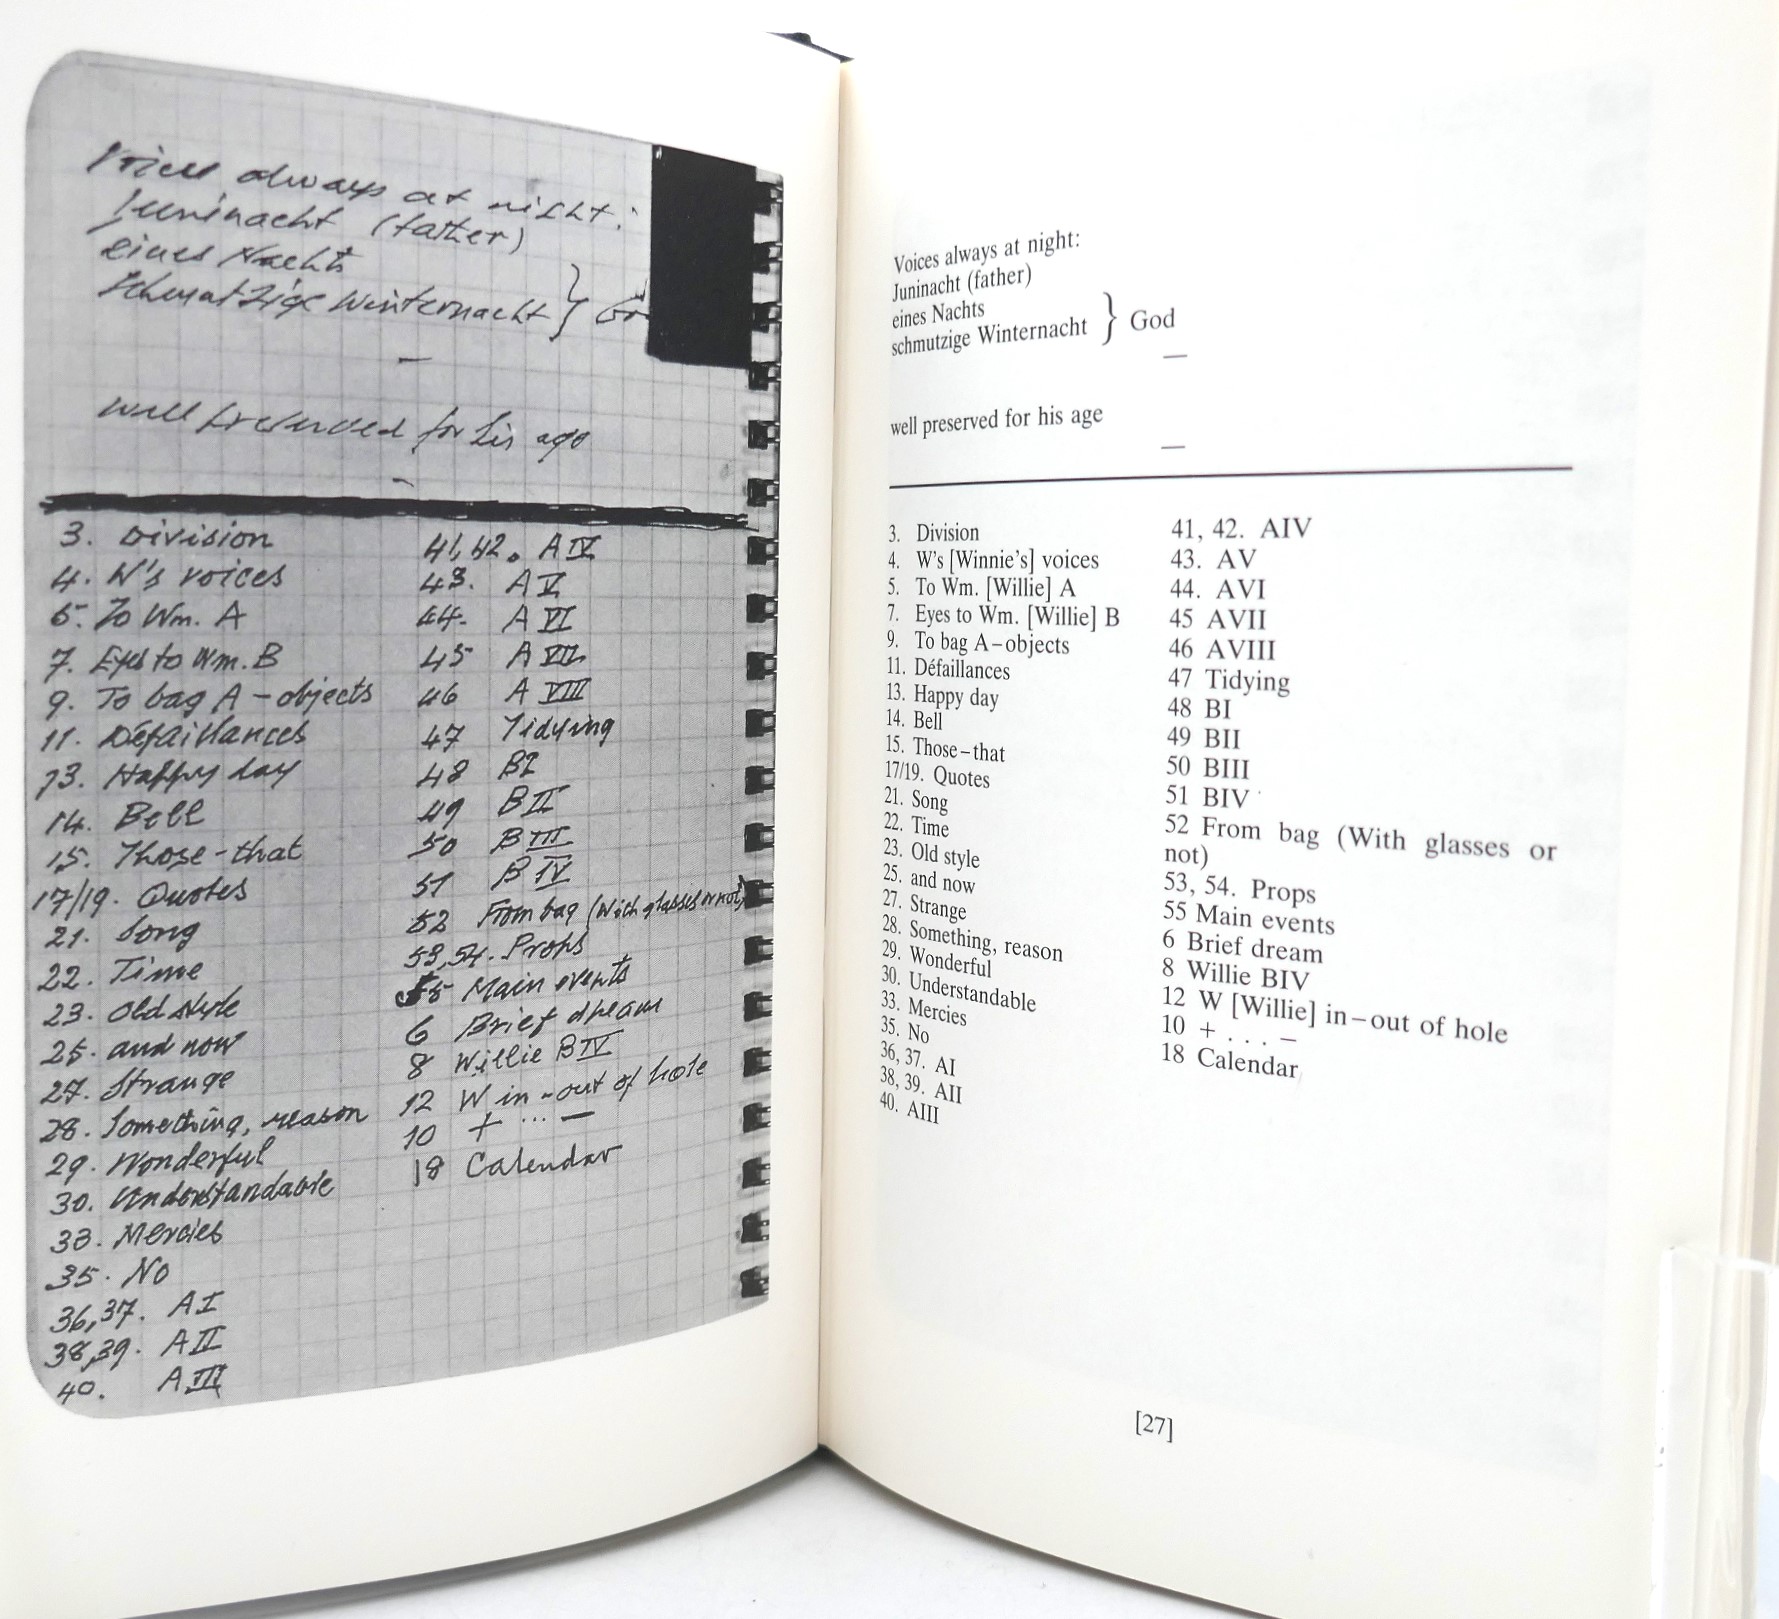 Voices always at night:
Juninacht (father)
eines Nachts
schmutzige Winternacht } Go
—
well preserved for his age
—
3. Division
4. W's voices
5. To Wm. A
7. Eyes to Wm. B
9. To bag A – objects
11. Défaillances
13. Happy day
14. Bell
15. Those – that
17/19. Quotes
21. Song
22. Time
23. Old style
25. and now
27. Strange
28. Something, reason
29. Wonderful
30. Understandable
33. Mercies
35. No
36,37. A I
38,39. A II
40. A III
41,42. A IV
43. A V
44. A VI
45 A VII
46 A VIII
47 Tidying
48 BI
49 B II
50 B III
51 B IV
52 From bag (With glasses or not)
53,54. Props
55 Main events
6 Brief dream
8 Willie B IV
12 W in – out of hole
10 + ... —
18 Calendar
Voices always at night:
Juninacht (father)
eines Nachts
schmutzige Winternacht } God
—
well preserved for his age
—
3. Division
4. W's [Winnie's] voices
5. To Wm. [Willie] A
7. Eyes to Wm. [Willie] B
9. To bag A–objects
11. Défaillances
13. Happy day
14. Bell
15. Those–that
17/19. Quotes
21. Song
22. Time
23. Old style
25. and now
27. Strange
28. Something, reason
29. Wonderful
30. Understandable
33. Mercies
35. No
36, 37. AI
38, 39. AII
40. AIII
41, 42. AIV
43. AV
44. AVI
45 AVII
46 AVIII
47 Tidying
48 BI
49 BII
50 BIII
51 BIV
52 From bag (With glasses or
not)
53, 54. Props
55 Main events
6 Brief dream
8 Willie BIV
12 W [Willie] in–out of hole
10 + . . . –
18 Calendar
[27]